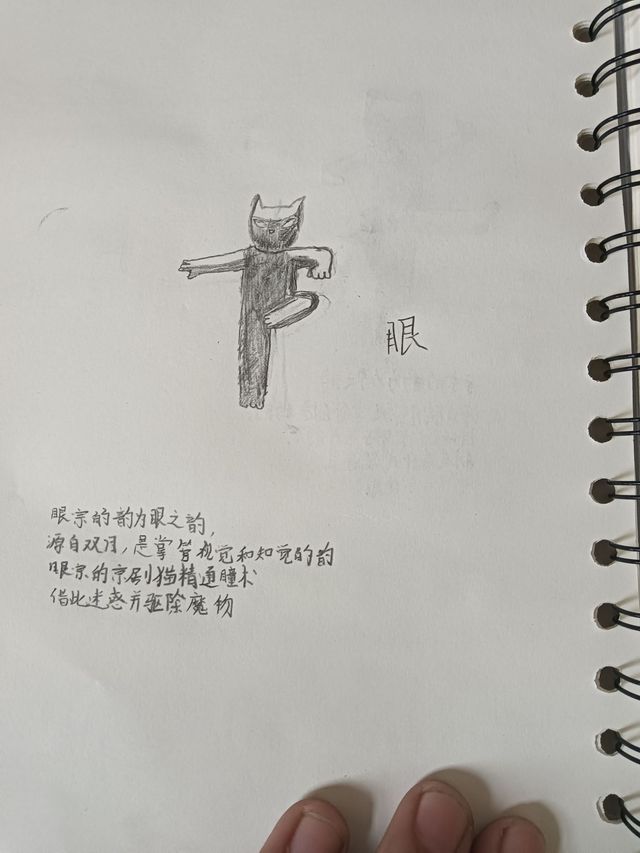 眼
眼宗的韵为眼之韵,
源自双目,是掌管视觉和知觉的韵
眼宗的京剧猫精通瞳术
借此迷惑并驱除魔物